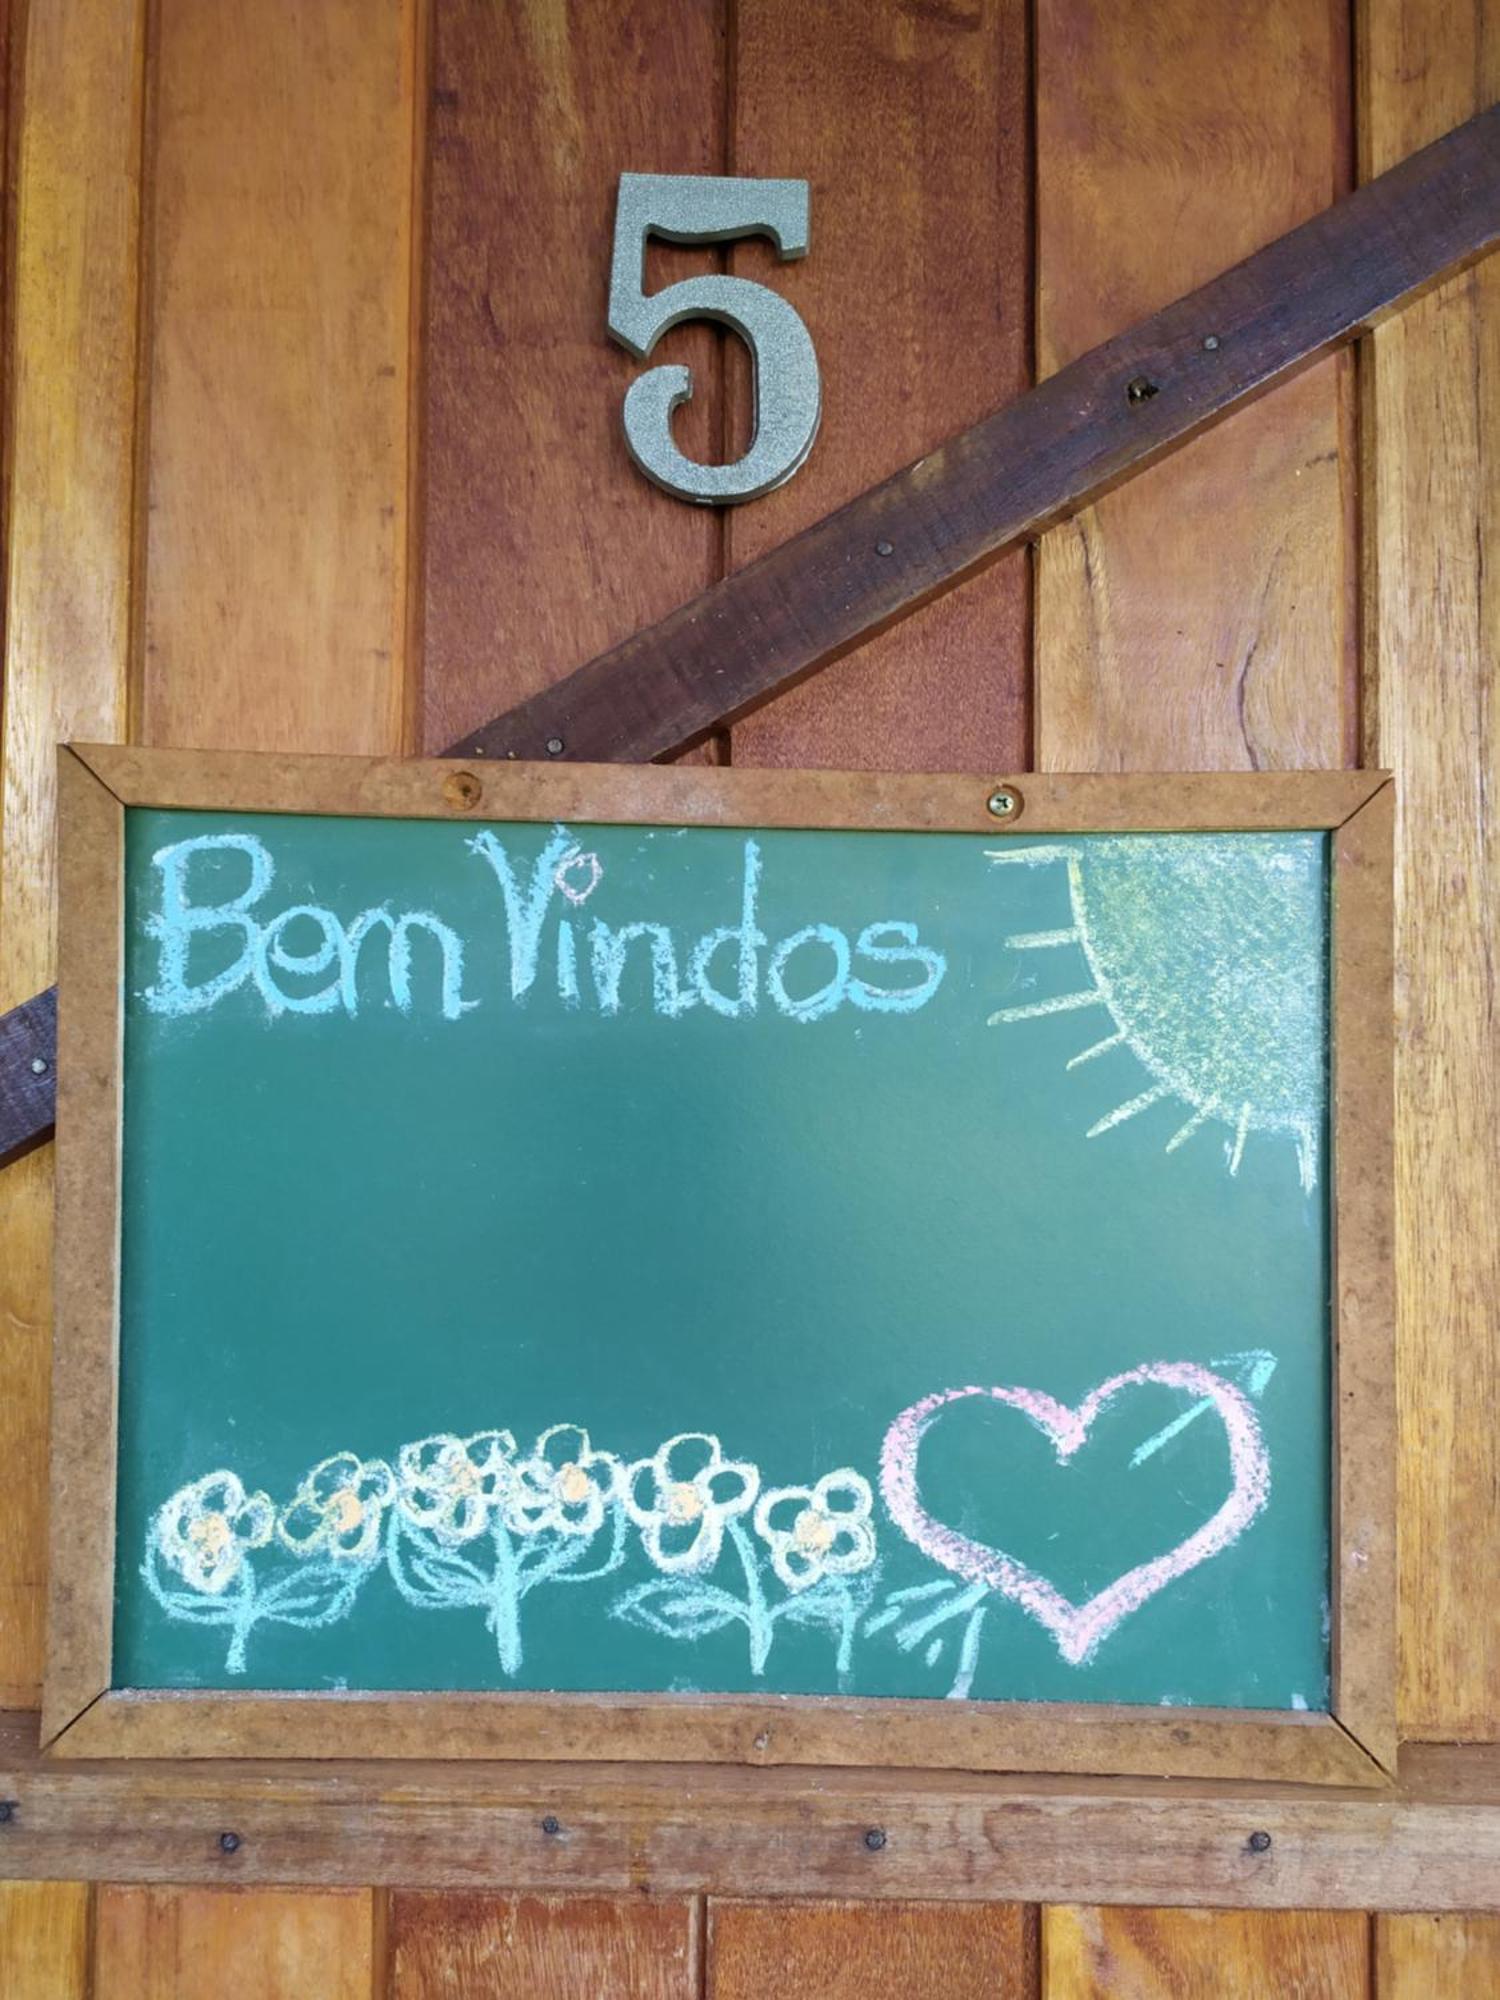 5
Bem Vindos